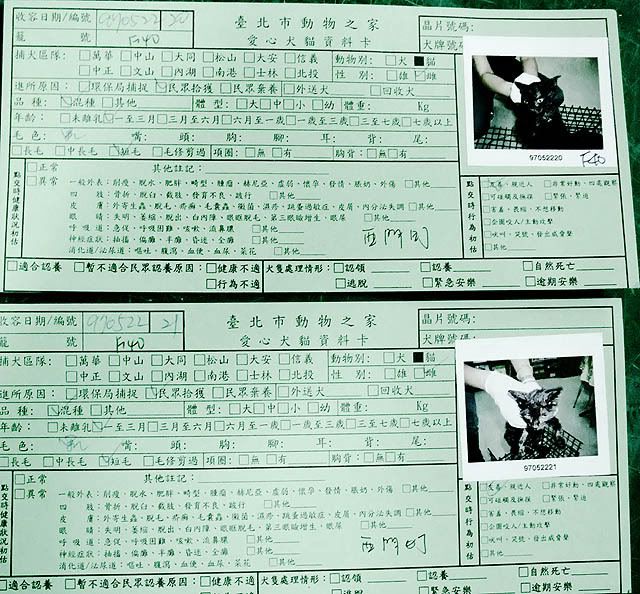 收容日期/編號 970522 20 臺北市動物之家 晶片號碼:
籠 號 F40 愛心犬貓資料卡 犬牌號碼
捕犬區隊: □萬華 □中山 □大同 □松山 □大安 □信義 動物別: □犬 ■貓
□中正 □文山 □內湖 □南港 □士林 □北投 性 別: □雄 □雌
進所原因: □環保局捕捉 □民眾拾獲 □民眾棄養 □外送犬 □回收犬
品 種: □混種 □其他 體 型: □大 □中 □小 □幼 體重: Kg
年齡: □未離乳 □一至三月 □三月至六月 □六月至一歲 □一歲至三歲 □三至七歲 □七歲以上
毛 色: 嘴: 頭: 胸: 腳: 耳: 背: 尾:
□長毛 □中長毛 □短毛 □毛修剪過 項圈: □無 □有 胸背: □無 □有
97052220 F40
點交時健康狀況初估
□正常 其他註記:
□異常 一般外表: 削瘦、脫水、肥胖、畸型、腫瘤、赫尼亞、虛弱、懷孕、發情、脹奶、外傷 □其他
四 肢: 骨折、脫臼、截肢、發育不良、跛行 □其他
皮 膚: 外寄生蟲、脫毛、疥癬、毛囊蟲、黴菌、濕疹、跳蚤過敏症、皮屑、內分泌失調 □其他
眼 睛: 失明、萎縮、脫出、白內障、眼眶脫毛、第三眼瞼增生、眼屎 □其他
呼 吸 道: 急促、呼吸困難、咳嗽、流鼻膿 □其他
神經症狀: 抽搐、偏癱、半癱、昏迷、全癱 □其他
消化道/泌尿道: 嘔吐、腹瀉、血便、血尿、菜花 □其他
西門町
點交時行為初估
□友善、親近人 □非常好動、四處觀察
□可碰觸及撫摸 □緊張、緊迫
□害羞、畏縮、不想移動
□企圖咬人/主動攻擊
□吠叫、哭號、發出威脅聲
□其他
□適合認養 □暫不適合民眾認養原因: □健康不適 犬隻處理情形: □認領 □認養 □自然死亡
□行為不適 □逃脫 □緊急安樂 □逾期安樂
收容日期/編號 970522 21 臺北市動物之家 晶片號碼:
籠 號 F40 愛心犬貓資料卡 犬牌號碼:
捕犬區隊: □萬華 □中山 □大同 □松山 □大安 □信義 動物別: □犬 ■貓
□中正 □文山 □內湖 □南港 □士林 □北投 性 別: □雄 □雌
進所原因: □環保局捕捉 □民眾拾獲 □民眾棄養 □外送犬 □回收犬
品 種: □混種 □其他 體 型: □大 □中 □小 □幼 體重: Kg
年齡: □未離乳 □一至三月 □三月至六月 □六月至一歲 □一歲至三歲 □三至七歲 □七歲以上
毛 色: 嘴: 頭: 胸: 腳: 耳: 背: 尾:
□長毛 □中長毛 □短毛 □毛修剪過 項圈: □無 □有 胸背: □無 □有
97052221
點交時健康狀況初估
□正常 其他註記:
□異常 一般外表: 削瘦、脫水、肥胖、畸型、腫瘤、赫尼亞、虛弱、懷孕、發情、脹奶、外傷 □其他
四 肢: 骨折、脫臼、截肢、發育不良、跛行 □其他
皮 膚: 外寄生蟲、脫毛、疥癬、毛囊蟲、黴菌、濕疹、跳蚤過敏症、皮屑、內分泌失調 □其他
眼 睛: 失明、萎縮、脫出、白內障、眼眶脫毛、第三眼瞼增生、眼屎 □其他
呼 吸 道: 急促、呼吸困難、咳嗽、流鼻膿 □其他
神經症狀: 抽搐、偏癱、半癱、昏迷、全癱 □其他
消化道/泌尿道: 嘔吐、腹瀉、血便、血尿、菜花 □其他
西門町
點交時行為初估
□友善、親近人 □非常好動、四處觀察
□可碰觸及撫摸 □緊張、緊迫
□害羞、畏縮、不想移動
□企圖咬人/主動攻擊
□吠叫、哭號、發出威脅聲
□其他
□適合認養 □暫不適合民眾認養原因: □健康不適 犬隻處理情形: □認領 □認養 □自然死亡
□行為不適 □逃脫 □緊急安樂 □逾期安樂